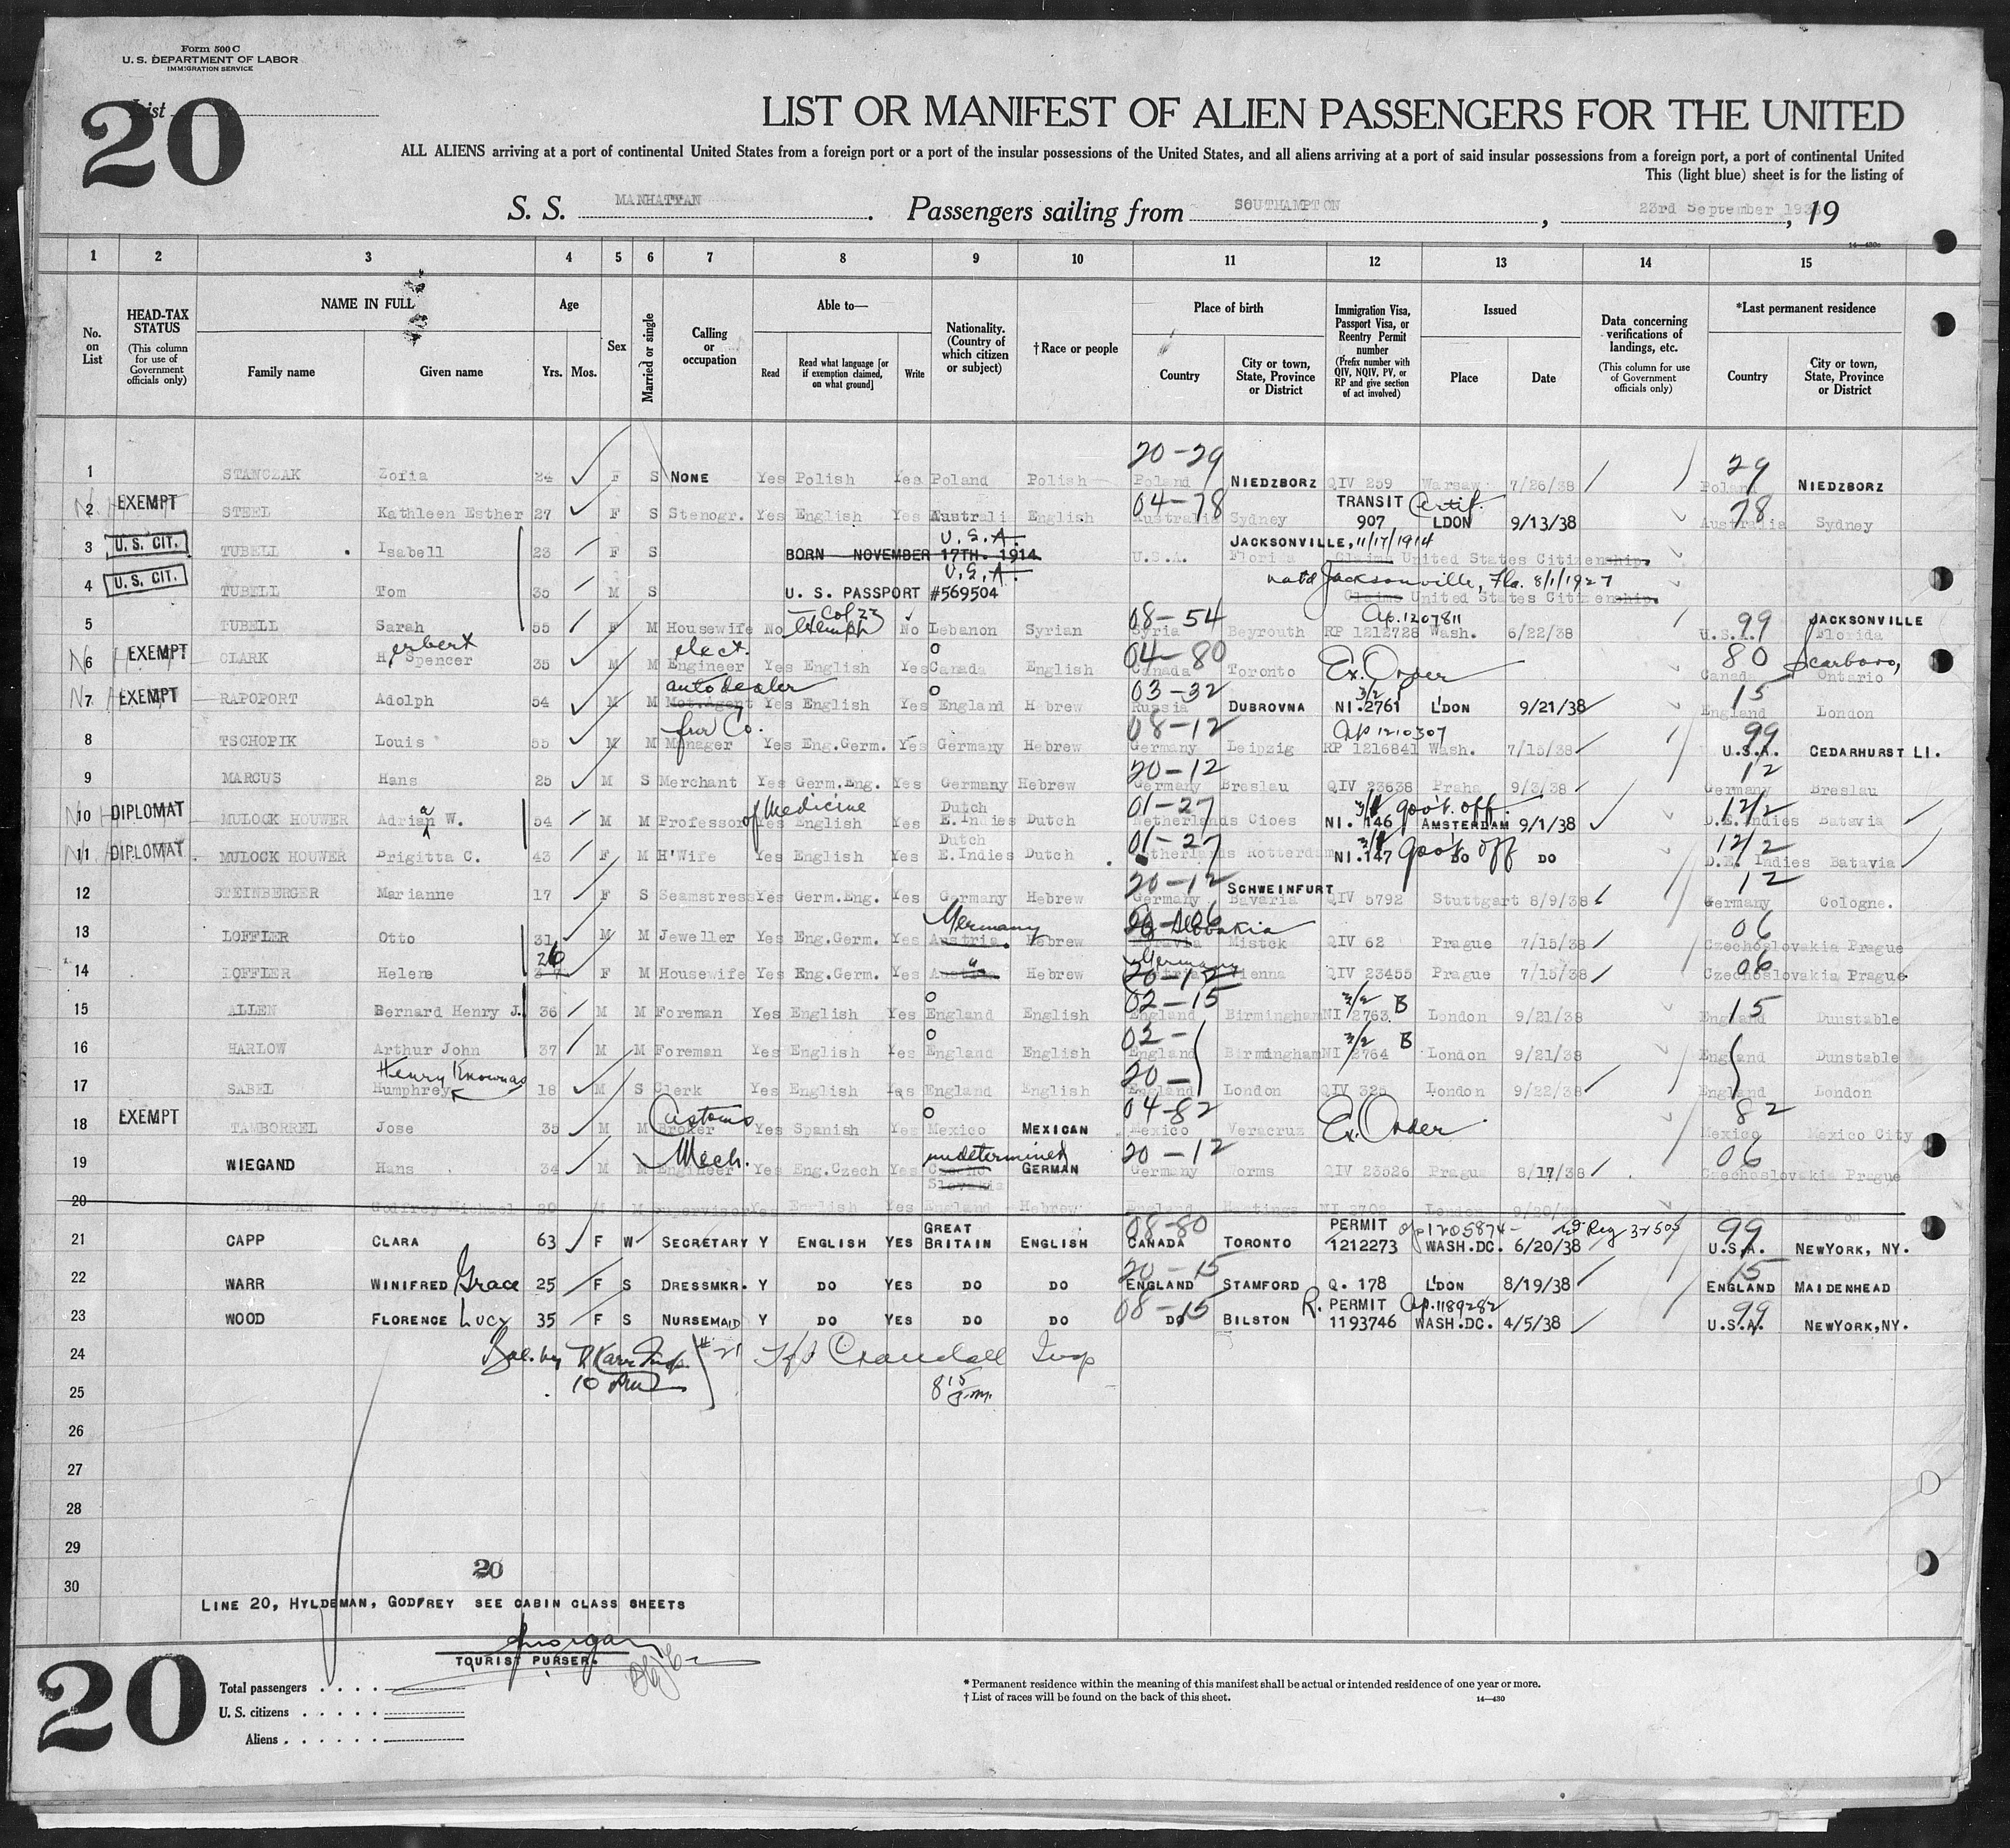 Form 500 C
U. S. DEPARTMENT OF LABOR
IMMIGRATION SERVICE
List
20
LIST OR MANIFEST OF ALIEN PASSENGERS FOR THE UNITED
ALL ALIENS arriving at a port of continental United States from a foreign port or a port of the insular possessions of the United States, and all aliens arriving at a port of said insular possessions from a foreign port, a port of continental United
This (light blue) sheet is for the listing of
S. S. MANHATTAN. Passengers sailing from SOUTHAMPTON, 23rd September 1938, 19
14—430c
1 2 3 4 5 6 7 8 9 10 11 12 13 14 15
No. on List
HEAD-TAX STATUS (This column for use of Government officials only)
NAME IN FULL
Family name
Given name
Age
Yrs.
Mos.
Sex
Married or single
Calling or occupation
Able to—
Read
Read what language [or if exemption claimed, on what ground]
Write
Nationality. (Country of which citizen or subject)
†Race or people
Place of birth
Country
City or town, State, Province or District
Immigration Visa, Passport Visa, or Reentry Permit number (Prefix number with QIV, NQIV, PV, or RP and give section of act involved)
Issued
Place
Date
Data concerning verifications of landings, etc. (This column for use of Government officials only)
*Last permanent residence
Country
City or town, State, Province or District
20-29 29
1 STANCZAK Zofia 24 F S NONE Yes Polish Yes Poland Polish Poland NIEDZBORZ QIV 259 Warsaw 7/26/38 Poland NIEDZBORZ
EXEMPT 04-78 TRANSIT Certif. 78
2 STEEL Kathleen Esther 27 F S Stenogr. Yes English Yes Australi English Australia Sydney 907 LDON 9/13/38 Australia Sydney
U. S. CIT. U.S.A. JACKSONVILLE, 11/17/1914
3 TUBELL Isabell 23 F S BORN NOVEMBER 17TH. 1914 U.S.A. Florida Claims United States Citizenship.
U. S. CIT. U.S.A. natd Jacksonville, Fla. 8/1/1927
4 TUBELL Tom 35 M S U. S. PASSPORT #569504 Claims United States Citizenship.
Col 23 08-54 Ap. 1207811 99 JACKSONVILLE
5 TUBELL Sarah 55 F M Housewife No Exempt No Lebanon Syrian Syria Beyrouth RP 1212728 Wash. 6/22/38 U.S.A. Florida
EXEMPT erbert elect. 04-80 80 Scarboro,
6 CLARK H. Spencer 35 M M Engineer Yes English Yes Canada English Canada Toronto Ex. Order Canada Ontario
EXEMPT auto dealer 03-32 3/2 15
7 RAPOPORT Adolph 54 M M Mot.Agent Yes English Yes England Hebrew Russia DUBROVNA NI.2761 L'DON 9/21/38 England London
fur Co. 08-12 Ap 1210307 99
8 TSCHOPIK Louis 55 M M Manager Yes Eng.Germ. Yes Germany Hebrew Germany Leipzig RP 1216841 Wash. 7/15/38 U.S.A. CEDARHURST LI.
20-12 12
9 MARCUS Hans 25 M S Merchant Yes Germ.Eng. Yes Germany Hebrew Germany Breslau QIV 23638 Praha 9/3/38 Germany Breslau
DIPLOMAT of Medicine Dutch 01-27 3/1 gov't. off. 12/2
10 MULOCK HOUWER Adrian a W. 54 M M Professor Yes English Yes E.Indies Dutch Netherlands Cioes NI. 146 AMSTERDAM 9/1/38 D.E.Indies Batavia
DIPLOMAT Dutch 01-27 3/1 gov't off 12/2
11 MULOCK HOUWER Brigitta C. 43 F M H'Wife Yes English Yes E.Indies Dutch Netherlands Rotterdam NI.147 DO DO D.E. Indies Batavia
20-12 SCHWEINFURT 12
12 STEINBERGER Marianne 17 F S Seamstress Yes Germ.Eng. Yes Germany Hebrew Germany Bavaria QIV 5792 Stuttgart 8/9/38 Germany Cologne.
Germany 20-06 Slovakia 06
13 LOFFLER Otto 31 M M Jeweller Yes Eng.Germ. Yes Austria. Hebrew Moravia Mistek QIV 62 Prague 7/15/38 Czechoslovakia Prague
26 " Germany 20-12 06
14 LOFFLER Helene 37 F M Housewife Yes Eng.Germ. Yes Austria Hebrew Austria Vienna QIV 23455 Prague 7/15/38 Czechoslovakia Prague
02-15 3/2 B 15
15 ALLEN Bernard Henry J. 36 M M Foreman Yes English Yes England English England Birmingham NI 2763 London 9/21/38 England Dunstable
02- 3/2 B
16 HARLOW Arthur John 37 M M Foreman Yes English Yes England English England Birmingham NI 2764 London 9/21/38 England Dunstable
Henry Known as 20-
17 SABEL Humphrey 18 M S Clerk Yes English Yes England English England London QIV 325 London 9/22/38 England London
EXEMPT Customs 04-82 82
18 TAMBORREL Jose 35 M M Broker Yes Spanish Yes Mexico MEXICAN Mexico Veracruz Ex. Order Mexico Mexico City
Mech. undetermined 20-12 06
19 WIEGAND Hans 34 M M Engineer Yes Eng.Czech Yes Czecho Slovakia GERMAN Germany Worms QIV 23526 Prague 8/17/38 Czechoslovakia Prague
20 Godfrey Michael M M Supervisor Yes English Yes England Hebrew England Hastings London 9/20/38
GREAT 08-80 PERMIT Ap 1205874 99
21 CAPP CLARA 63 F W SECRETARY Y ENGLISH YES BRITAIN ENGLISH CANADA TORONTO 1212273 WASH.DC. 6/20/38 U.S.A. NEWYORK, NY.
20-15 15
22 WARR WINIFRED Grace 25 F S DRESSMKR. Y DO YES DO DO ENGLAND STAMFORD Q. 178 L'DON 8/19/38 ENGLAND MAIDENHEAD
08-15 R. PERMIT Ap. 1189282 99
23 WOOD FLORENCE Lucy 35 F S NURSEMAID Y DO YES DO DO DO BILSTON 1193746 WASH.DC. 4/5/38 U.S.A. NEWYORK,NY.
24 #21 Crandall Insp
25 10 815 p.m.
26
27
28
29
20
30
LINE 20, HYLDEMAN, GODFREY SEE CABIN CLASS SHEETS
TOURIST PURSER.
20
Total passengers
U. S. citizens
Aliens
* Permanent residence within the meaning of this manifest shall be actual or intended residence of one year or more.
† List of races will be found on the back of this sheet.
14—430